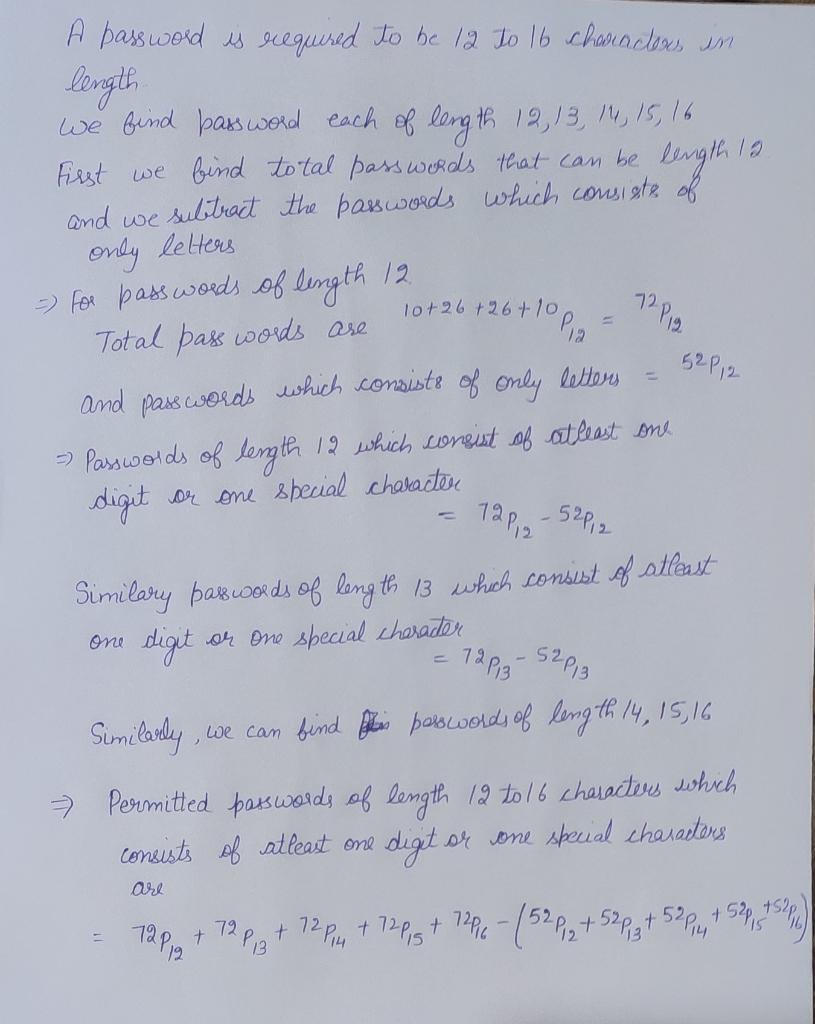 A password is required to be 12 to 16 characters in
length.
We find password each of length 12, 13, 14, 15, 16
First we find total passwords that can be length 12
and we subtract the passwords which consists of
only letters
⇒ For passwords of length 12
Total pass words are ¹⁰⁺²⁶⁺²⁶⁺¹⁰P₁₂ = ⁷²P₁₂
and passwords which consists of only letters = ⁵²P₁₂
⇒ Passwords of length 12 which consist of atleast one
digit or one special character
= ⁷²P₁₂ - ⁵²P₁₂
Similary passwords of length 13 which consist of atleast
one digit or one special character
= ⁷²P₁₃ - ⁵²P₁₃
Similarly, we can find passwords of length 14, 15, 16
⇒ Permitted passwords of length 12 to 16 characters which
consists of atleast one digit or one special characters
are
= ⁷²P₁₂ + ⁷²P₁₃ + ⁷²P₁₄ + ⁷²P₁₅ + ⁷²P₁₆ - (⁵²P₁₂ + ⁵²P₁₃ + ⁵²P₁₄ + ⁵²P₁₅ + ⁵²P₁₆)